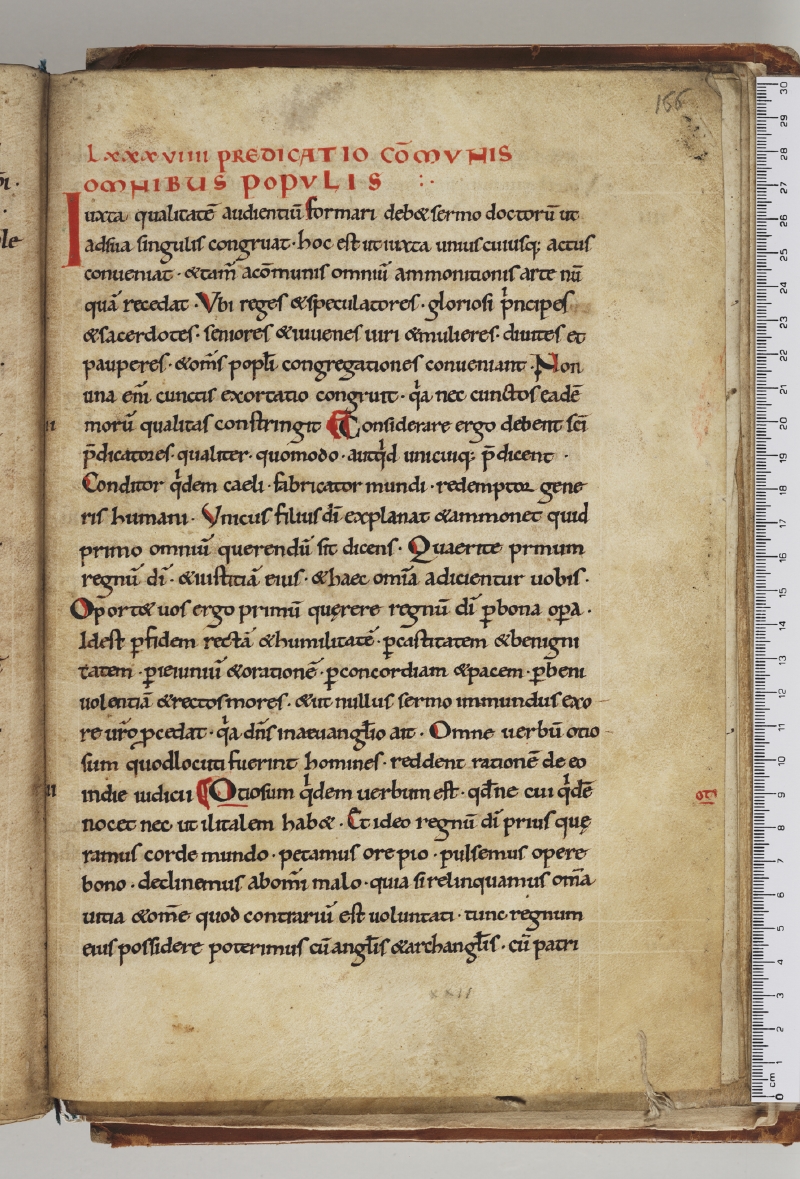 166
Lxxxviiii PREDICATIO COM̄VNIS
OMNIBUS POPVLIS :·
Iuxta qualitatē audientiū formari deb& sermo doctorū ut
adsua singulis congruat · hoc est ut iuxta uniuscuiusq; actus
conueniat · & tam̄ acōmunis omniū ammonitionis arte nū
quā recedat · Vbi reges & speculatores · gloriosi p̍ncipes
& sacerdotes · seniores & iuuenes uiri & mulieres · diuites et
pauperes · & om̄s popłi congregationes conueniant · Non
una em̄ cunctis exortatio congruit · q̍a nec cunctos eadē
morū qualitas constringit Considerare ergo debent sc̄i
p̄dicatores · qualiter · quomodo · autq̍d unicuiq; p̄dicent ·
Conditor q̍dem caeli · fabricator mundi · redemptor gene
ris humani · Vnicus filius dī explanat & ammonet quid
primo omniū querendū sit dicens · Quaerite primum
regnū dī · & iustitiā eius · & haec om̄ia adicientur uobis ·
Oport& uos ergo primū quęrere regnū dī ꝑ bona oꝑa ·
Idest ꝑ fidem rectā & humilitatē · ꝑ castitatem & benigni
tatem · ꝑ ieiuniū & orationē · ꝑ concordiam & pacem · ꝑ beni
uolentiā & rectos mores · & ut nullus sermo immundus exo
re ur̄o ꝓcedat · q̍a dn̄s inaeuanglīo ait · Omne uerbū otio
sum quodlocuti fuerint homines · reddent rationē de eo
indie iudicii Otiosum q̍dem uerbum est · qd̄ne cui q̍dē
nocet nec utilitalem hab& · Et ideo regnū dī prius quę
ramus corde mundo · petamus ore pio · pulsemus opere
bono · declinemus abom̄i malo · quia si relinquamus om̄a
uitia & om̄e quod contrariū est uoluntati · tunc regnum
eius possidere poterimus cū angłis & archangłis · cū patri
xxii